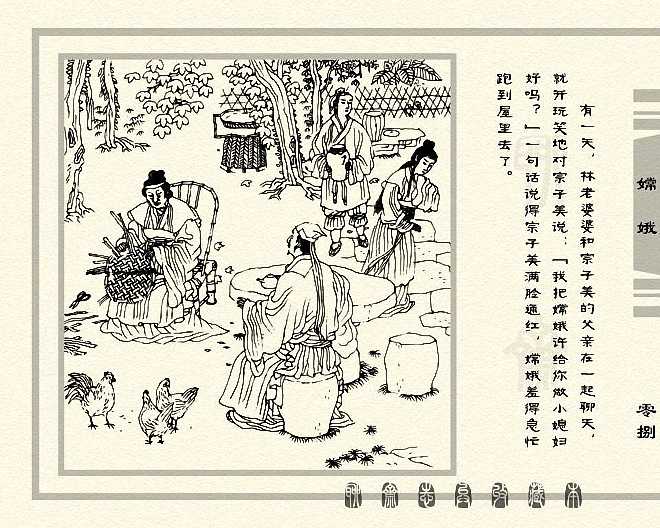 有一天，林老婆婆和宗子美的父亲在一起聊天，
就开玩笑地对宗子美说：「我把嫦娥许给你做小媳妇
好吗？」一句话说得宗子美满脸通红，嫦娥羞得急忙
跑到屋里去了。
嫦娥
零捌